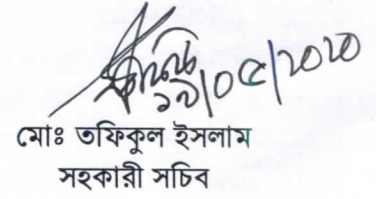 ১৯/০৫/২০২০
মোঃ তফিকুল ইসলাম
সহকারী সচিব